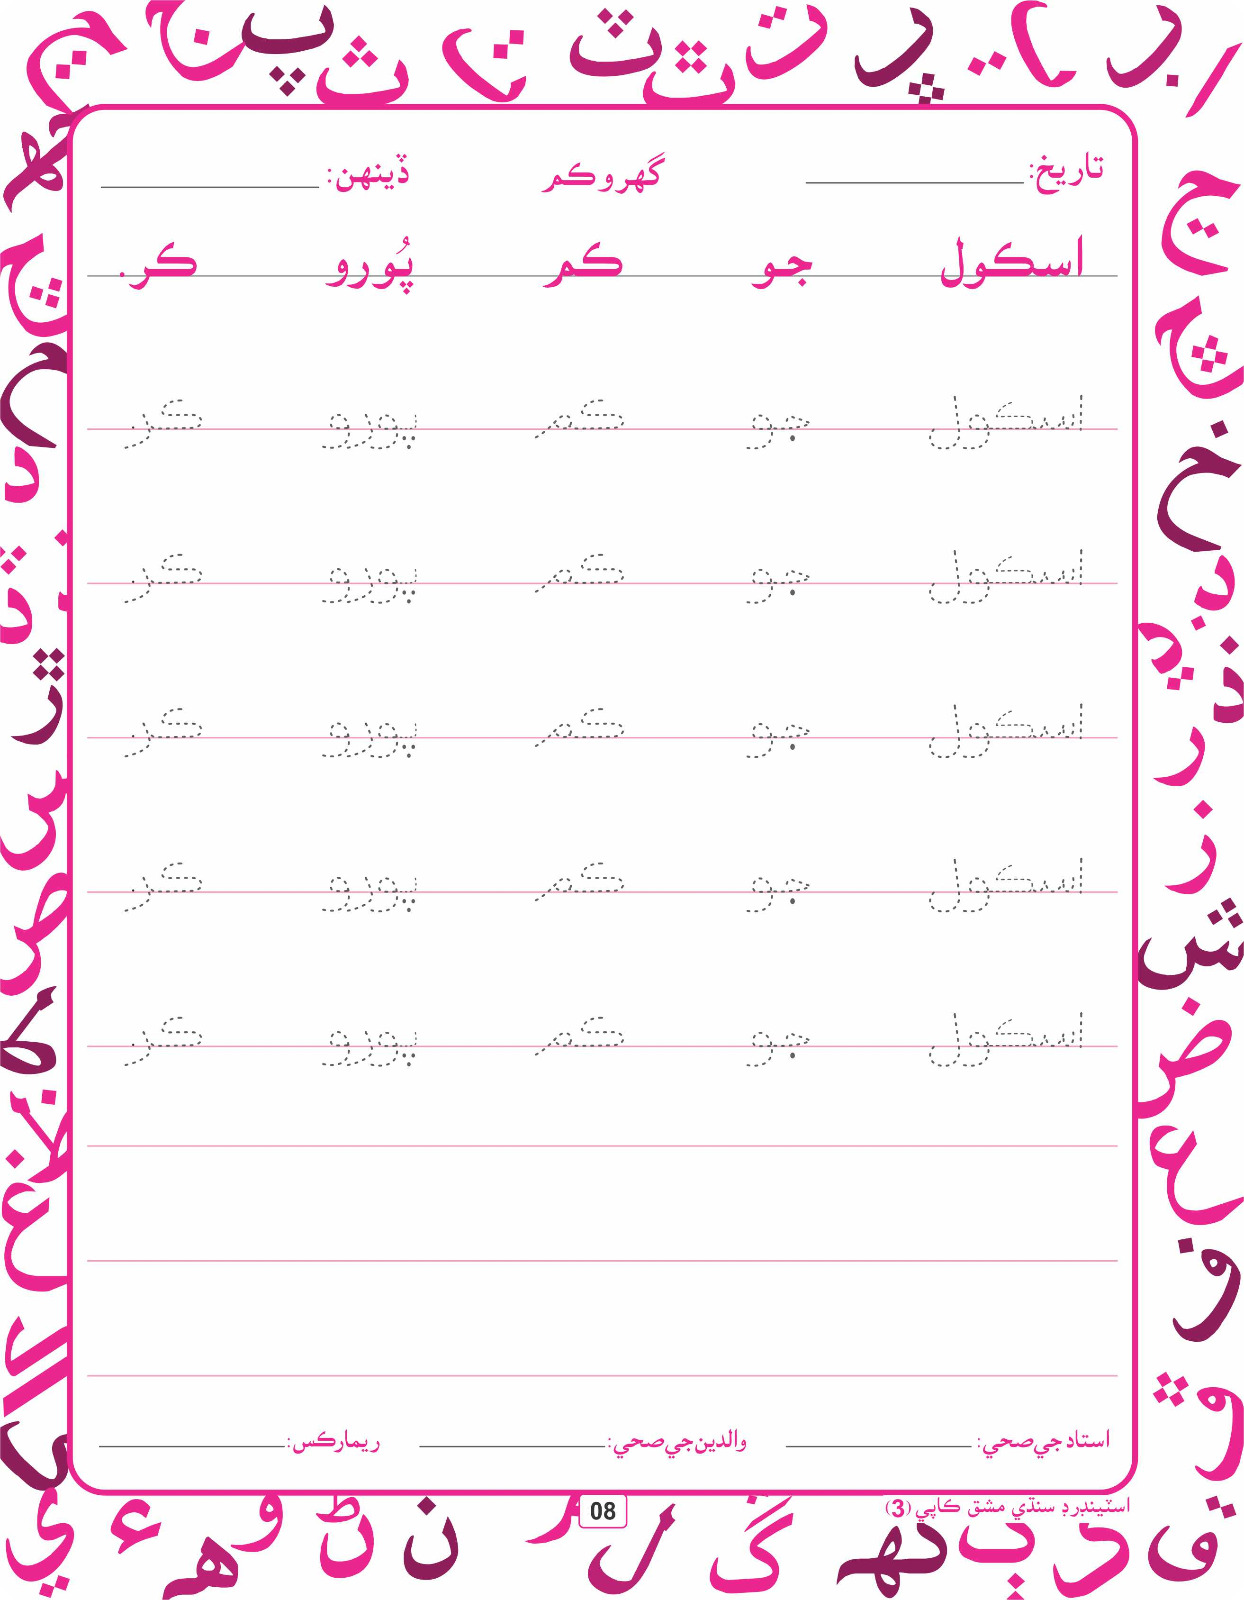 تاريخ: گهرو ڪم ڏينهن:
اسڪول جو ڪم پُورو ڪر.
اسڪول جو ڪم پورو ڪر
اسڪول جو ڪم پورو ڪر
اسڪول جو ڪم پورو ڪر
اسڪول جو ڪم پورو ڪر
اسڪول جو ڪم پورو ڪر
استاد جي صحي: والدين جي صحي: ريمارڪس:
اسٽينڊرڊ سنڌي مشق ڪاپي (3)
08